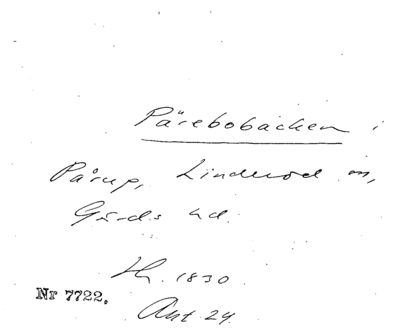 Pärebobacken i
Pårup, Linderod sn,
Gärds hd.
Hr. 1830
Nr 7722.
Ant 24